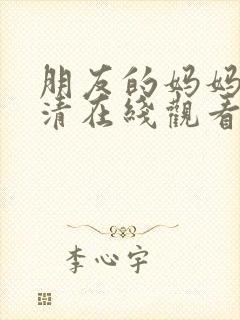 朋友的妈妈
清在线觀看
李心宇